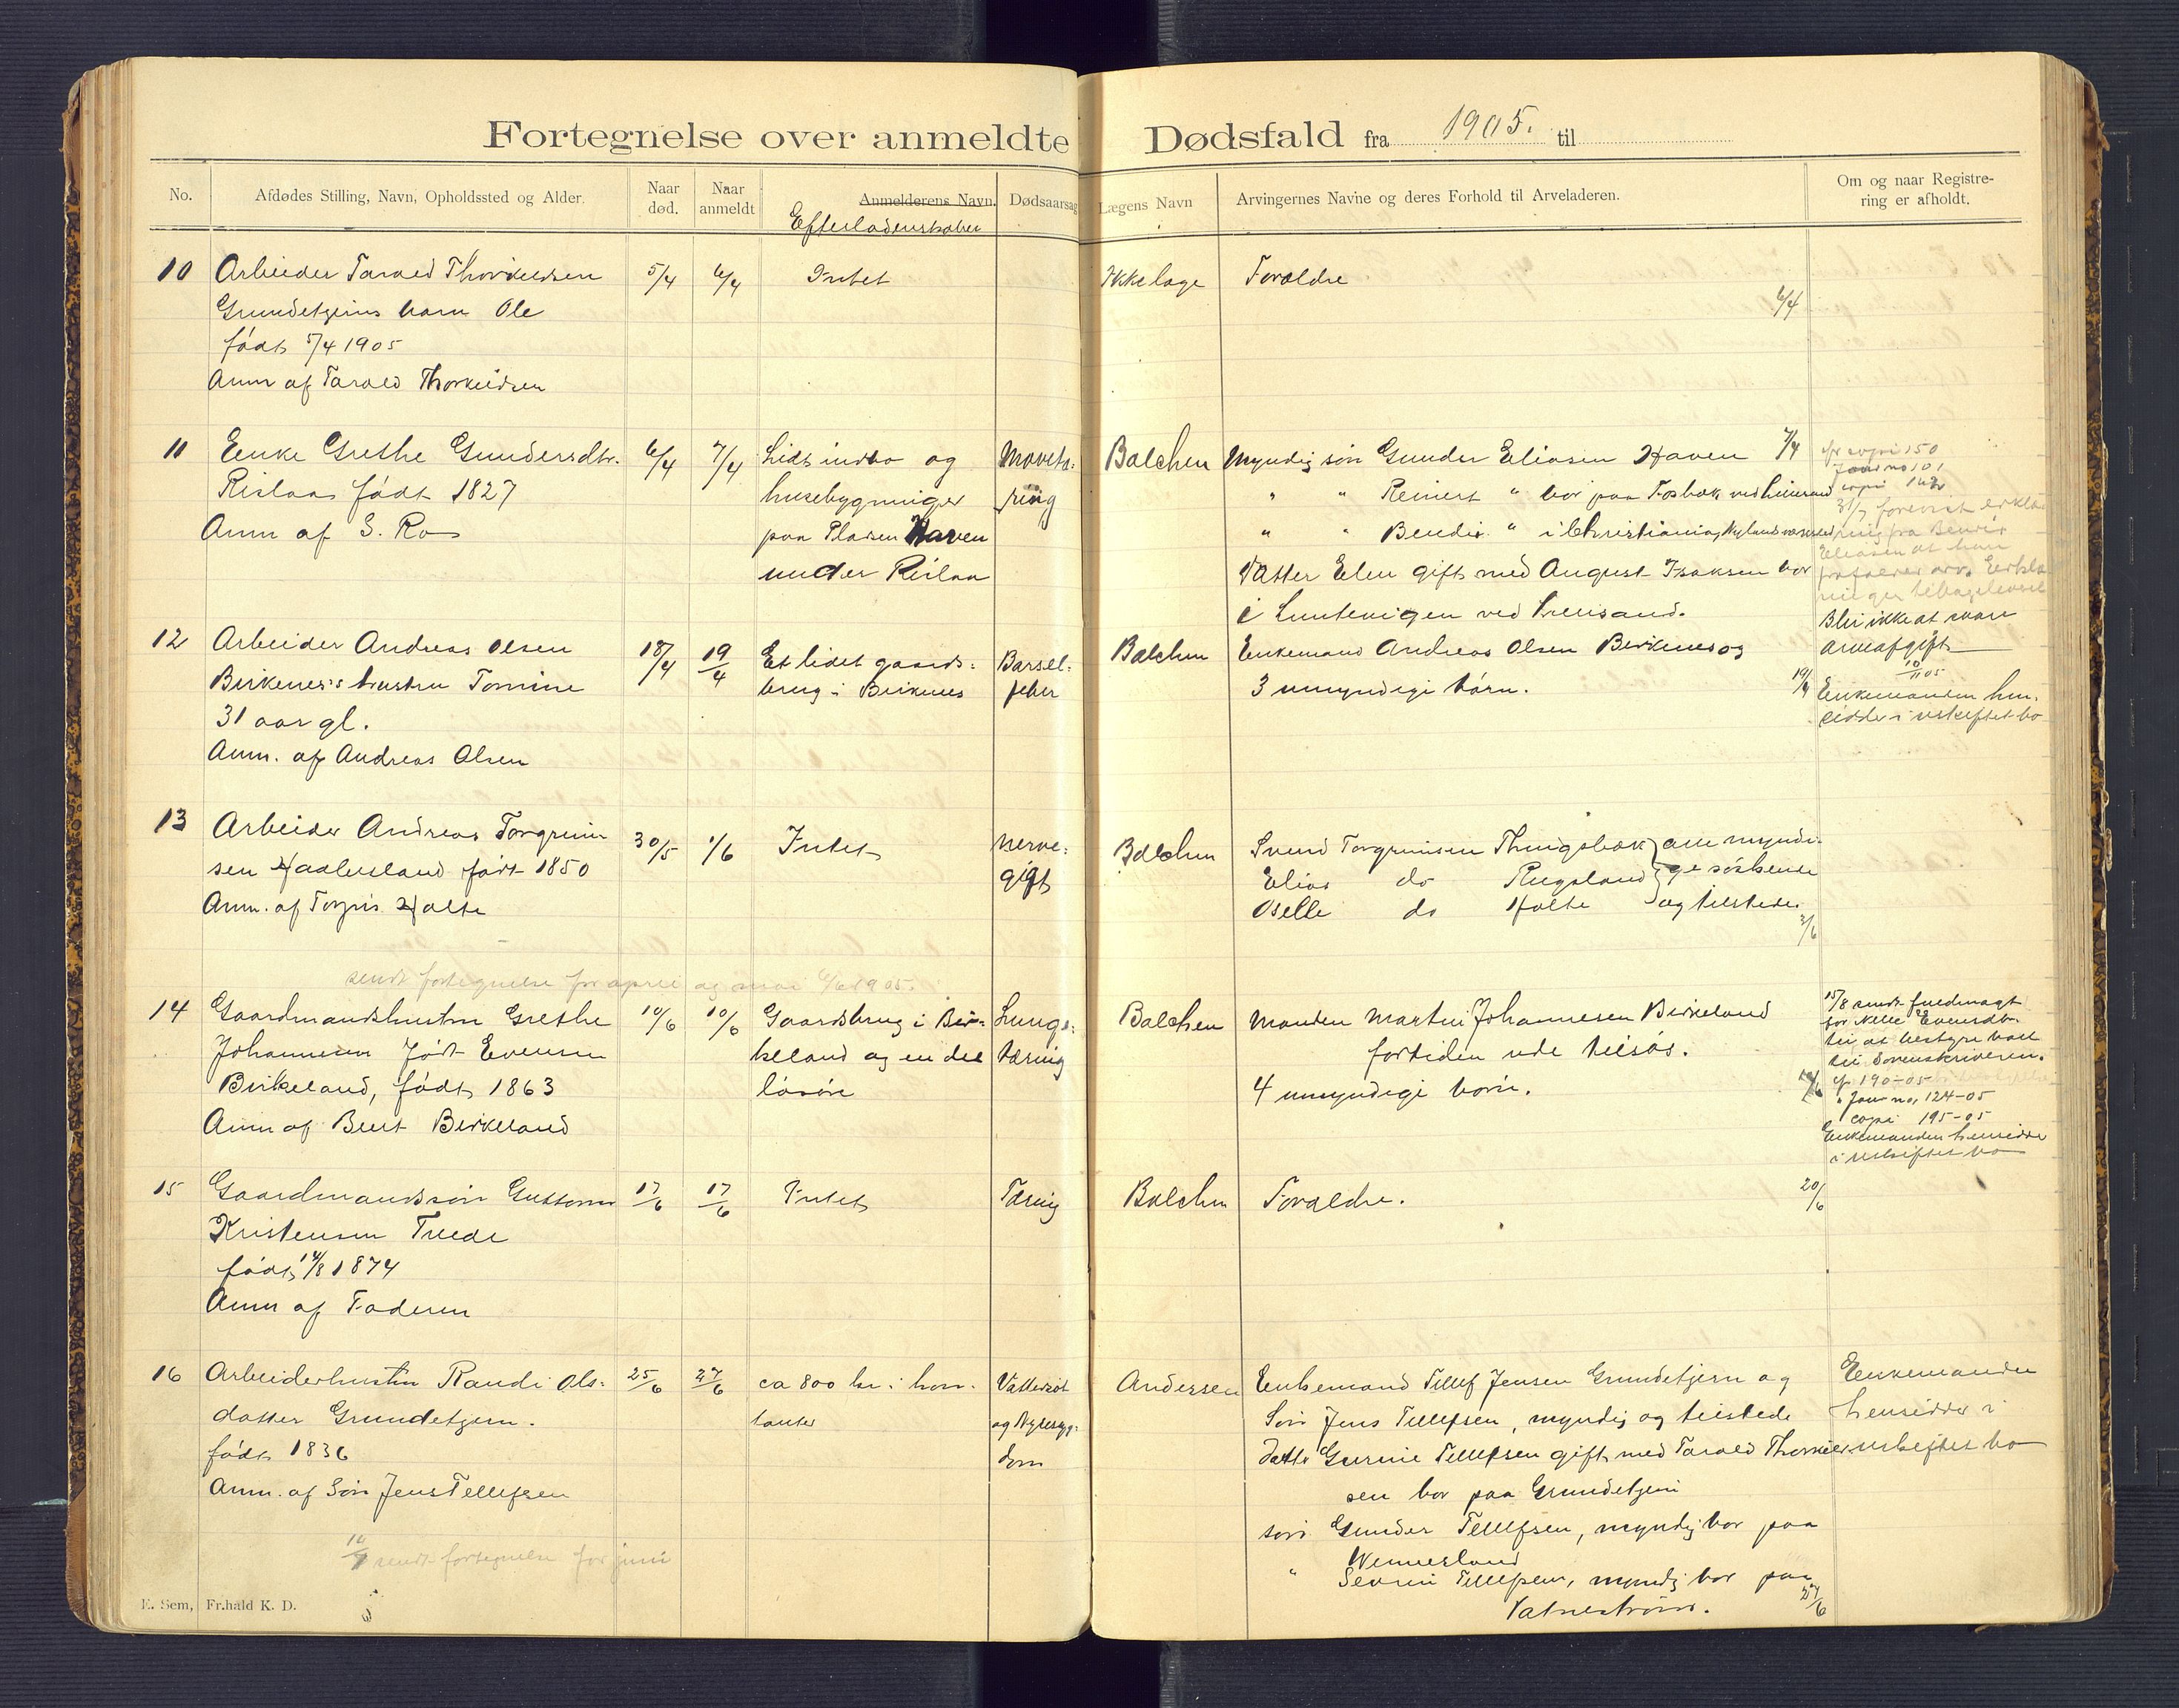 Fortegnelse over anmeldte Dødsfald fra 1905. til
No.
Afdødes Stilling, Navn, Opholdssted og Alder.
Naar død.
Naar anmeldt
Anmelderens Navn.
Efterladenskaber
Dødsaarsag
Lægens Navn
Arvingernes Navne og deres Forhold til Arveladeren.
Om og naar Registre-
ring er afholdt.
10 Arbeider Tarald Thorkildsen 5/4 6/4 Intet Ikke læge Forældre
Grundetjerns barn Ole 6/4
født 5/4 1905
Anm af Tarald Thorkildsen
11 Enke Grethe Gundersdtr. 6/4 7/4 Lidt indbo og Mavetæ- Balchen Myndig søn Gunder Eliasen Haven 7/4
Rislaa født 1827 husebygninger ring " " Reinert " bor paa Fosbæk ved Lillesand
Anm af S. Ro paa Pladsen Haven " " Bendix " i Christiania, Nylands værksted
under Rislaa Datter Elen gift med August Isaksen bor
i Luntevigen ved Lillesand.
cfr copi 150
Jour no 101
copi 162
31/7 forevist erklæ-
ring fra Bendix
Eliasen at han
frafalder arv. Erklæ-
ringen tilbageleveret
Blir ikke at svare
arveafgift
10/11 05
12 Arbeider Andreas Olsen 18/4 19/4 Et lidet gaards- Barsel- Balchen Enkemand Andreas Olsen Birkenes og
Birkenes's hustru Tomine brug i Birkenes feber 3 umyndige børn. 19/4 Enkemanden hen-
31 aar gl. sidder i uskiftet bo
Anm. af Andreas Olsen
13 Arbeider Andreas Torgrim 30/5 1/6 Intet Nerve- Balchen Svend Torgrimsen Thingsbæk } alle myndi-
sen Haabesland født 1850 gigt Elias do Rugsland } ge søskende
Anm. af Torgris Holte Oselle do Holte } og tilstede. 3/6
sendt fortegnelse for april og mai 6/6 1905.
14 Gaardmandshustru Grethe 10/6 10/6 Gaardsbrug i Bir- Lunge- Balchen Manden Martin Johannesen Birkeland
Johannesen født Evensen keland og en del tæring fortiden ude tilsøs.
Birkeland, født 1863 løsøre 4 umyndige børn.
Anm af Bent Birkeland
15/8 sendt fuldmagt
for Nelle Evensdtr.
til at bestyre boet
til Sorenskriveren.
cf 190-05
" Jour no, 124-05
" copi 195-05
Enkemanden hensidder
i uskiftet bo
15 Gaardmandssøn Guttorm 17/6 17/6 Intet Tæring Balchen Forældre. 20/6
Kristensen Tvede
født 14/8 1874
Anm af Faderen
16 Arbeiderhustru Randi Ols- 25/6 27/6 ca 800 kr. i kon- Vattersot Andersen Enkemand Tellef Jensen Grundetjern og Enkemanden
datter Grundetjern. tanter og Nyresyg- Søn Jens Tellefsen, myndig og tilstede hensidder i
født 1836 dom Datter Gurine Tellefsen gift med Tarald Thorkild- uskiftet bo
Anm. af Søn Jens Tellefsen sen bor paa Grundetjern
søn Gunder Tellefsen, myndig bor paa
Wennesland
" Severin Tellefsen, myndig bor paa
Vatnestrøm. 27/6
sendt fortegnelse for juni
E. Sem, Fr.hald K. D.